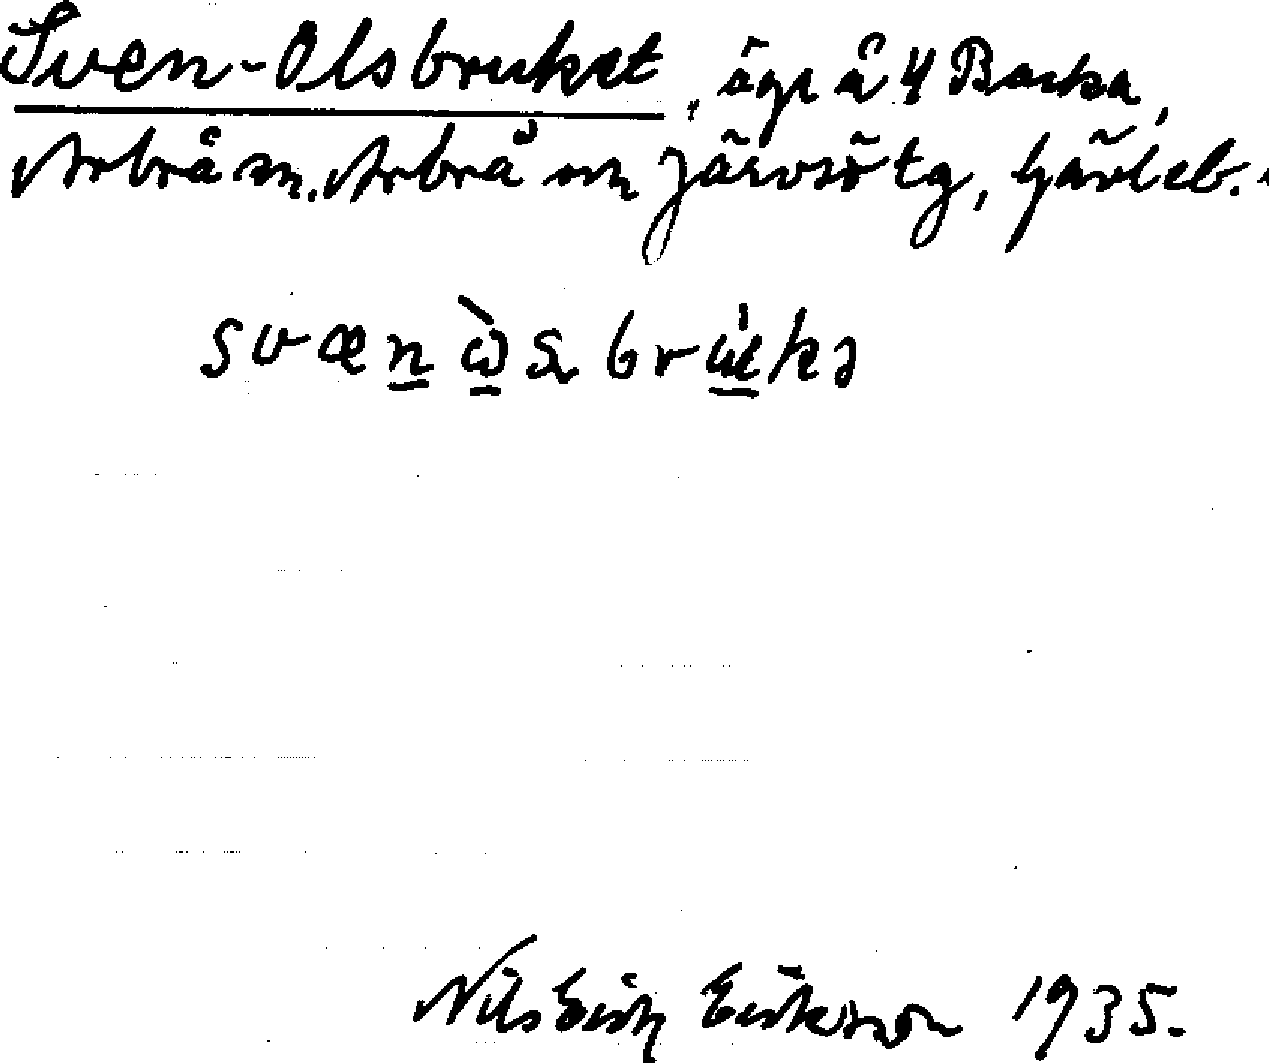 Sven-Olsbruket, ägr å 4 Backa,
Arbrå sn. Arbrå och Järvsö tg, Gävleb.
svænòsbrúkə
Nils Erik Eriksson 1935.